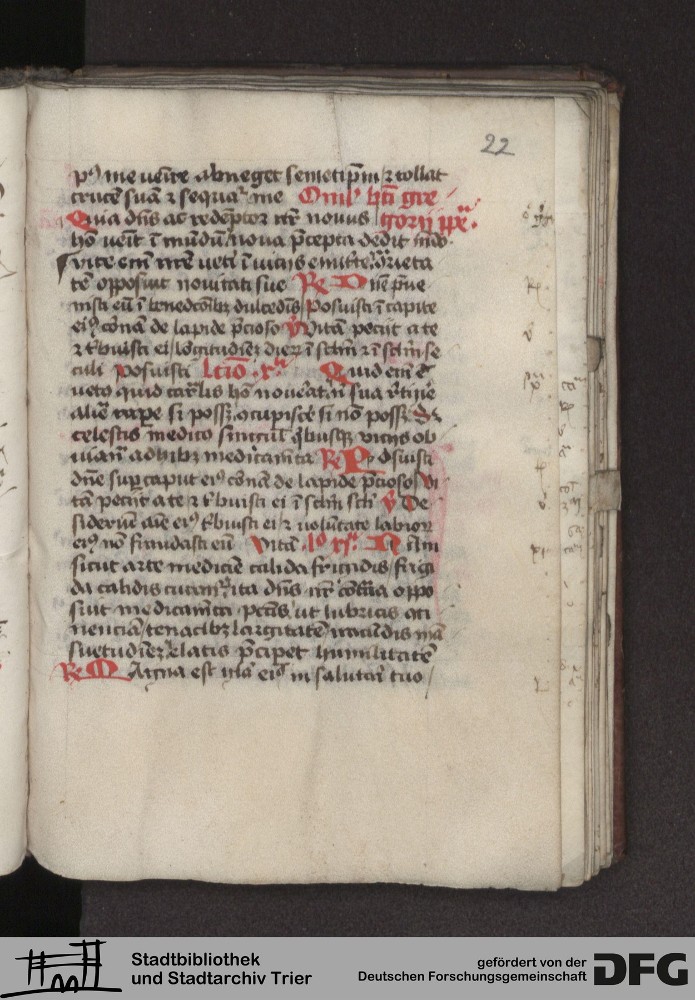 22
pꝰ me ven̄re abneget semetip̄m / ⁊ tollat
crucē suā ⁊ sequat᷑ me Omīl' bt̄i gre
Quia dn̄s ac redēptor nr̄ novus gorij pp̄e
hō venit ī mūdū / nova p̄cepta dedit mūdo
vite em̄ nr̄e veti ī vicijs enutrite 9rieta
tē opposuit novitatē sue Rꝫ Dn̄e p̄ue
nisti eū ī bened̄cōībꝫ dulcedīs / posuisti ī capite
eiꝰ coronā de lapide p̄cioso v̓ Vitā peciit a te
⁊ t'buisti ei / lōgitudīeꝫ dierꝝ ī sēlm̄ ⁊ ī sēlm̄ se
culi posuisti lccīo xª Quid em̄ ē
veto quid carl̄is hō nov̓at n̄ sua r̓tinē
aliē rape si possꝫ / ꝯcupiscē si nō possꝫ Sꝫ
celestis medicꝰ singul' q̄busqꝫ vicijs ob
viam̄ adhibꝫ medicam̄ta Rꝫ Posuisti
dn̄e sup̱ caput eiꝰ coronā de lapide p̄cioso Vi
tā peciit a te ⁊ t'buisti ei ī sēlm̄ sēli v̓ De
sideriū aīe eiꝰ t'buisti ei / ⁊ volūtate labiorꝝ
eiꝰ nō fraudasti eū Vitā lº xjª Nā
sicut arte medicīe calida frigidis / frigi
da calidis curant᷑ / ita dn̄s nr̄ cōtr̄ia oppo
suit medicam̄ta pctīs / ut lubricis ꝯti
nenciā / tenacibꝫ largitatē iracūdis mā
suetudīeꝫ / elatis p̄ciperet humilitatē
Rꝫ Magna est gl'ia eiꝰ in salutar̄ tuo /
Stadtbibliothek
und Stadtarchiv Trier
gefördert von der
Deutschen Forschungsgemeinschaft
DFG